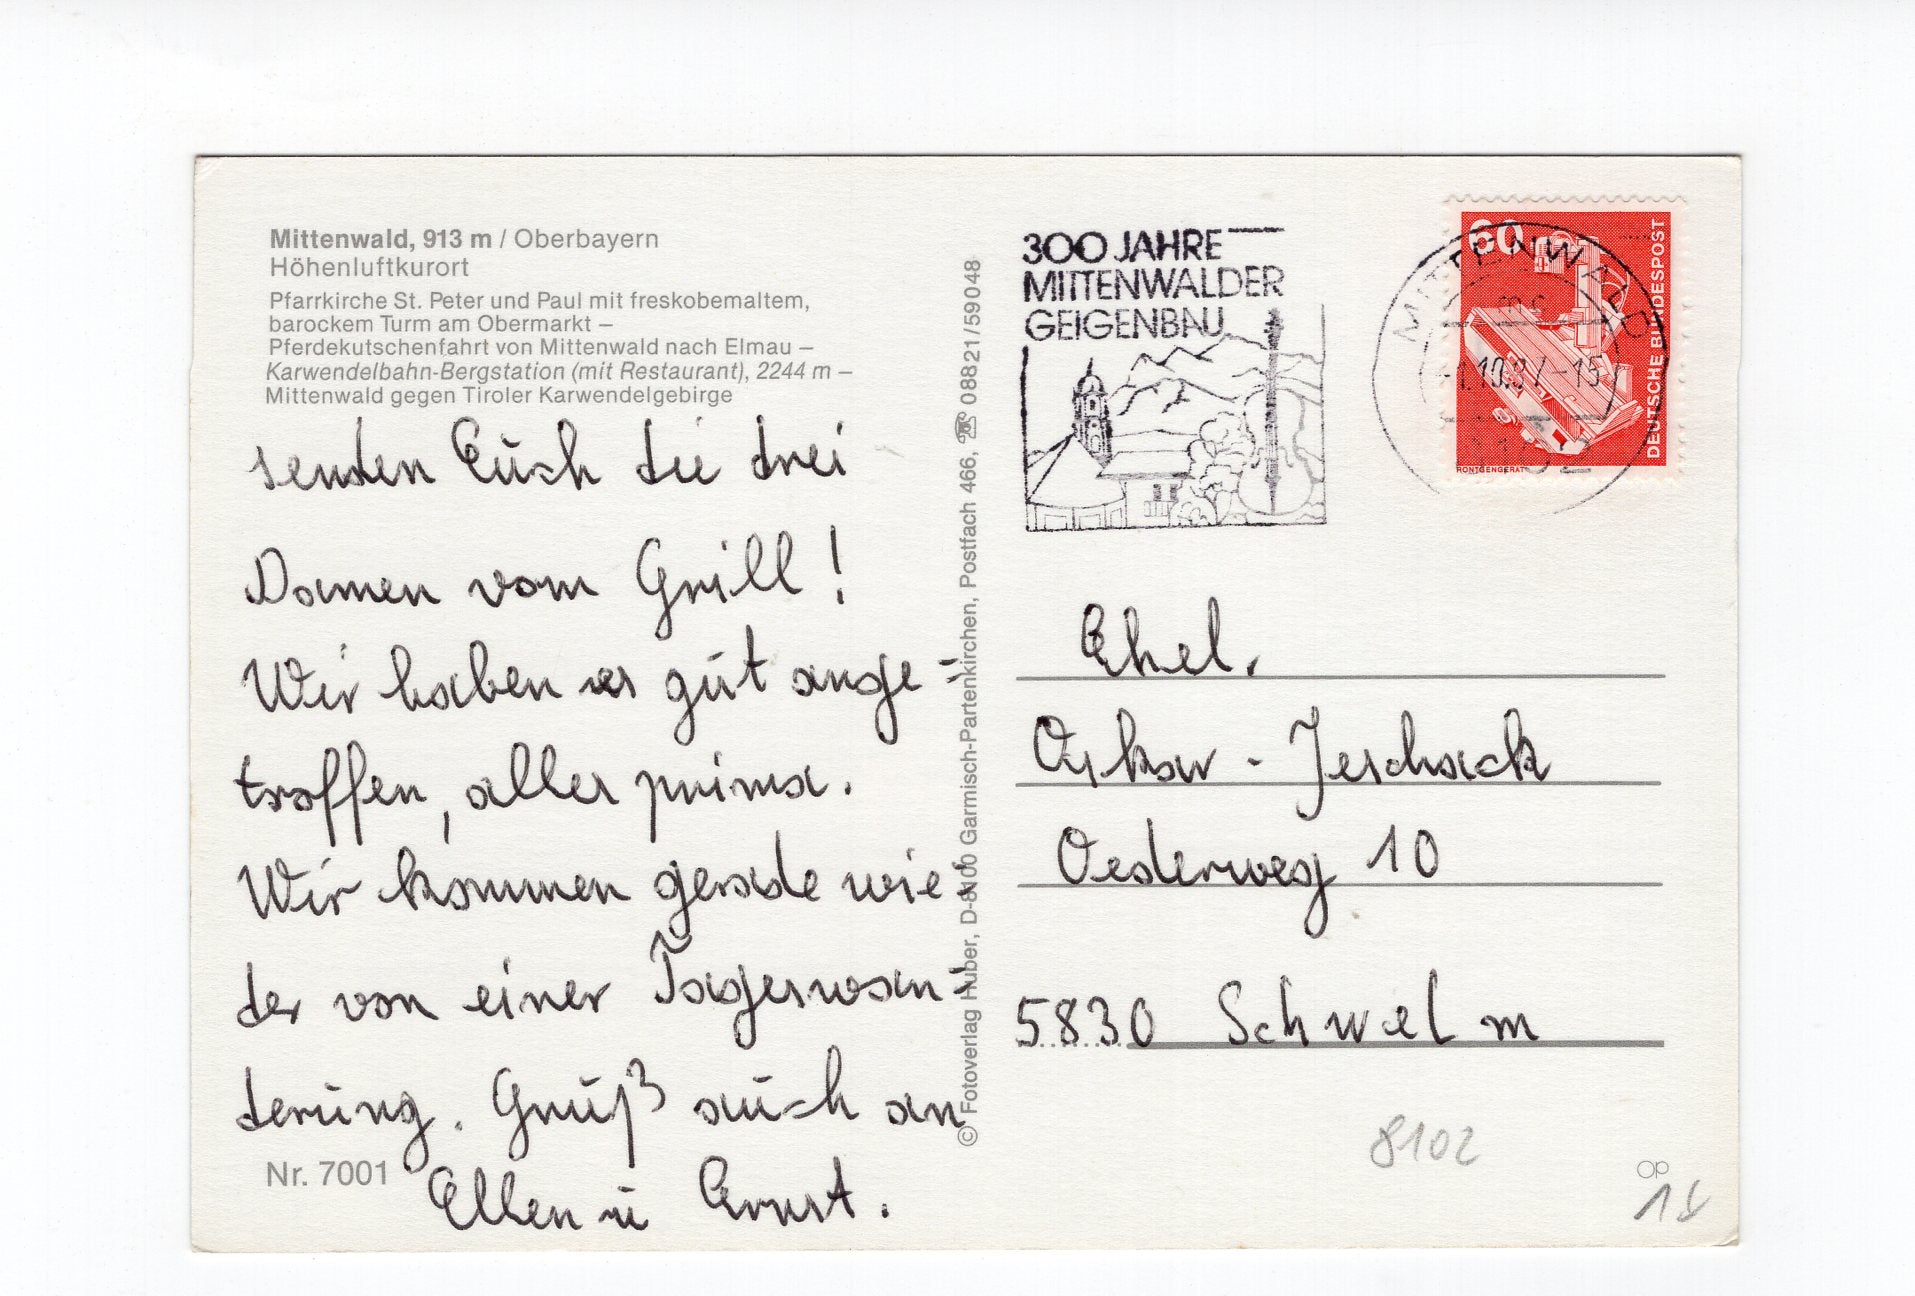 Mittenwald, 913 m / Oberbayern
Höhenluftkurort
Pfarrkirche St. Peter und Paul mit freskobemaltem,
barockem Turm am Obermarkt –
Pferdekutschenfahrt von Mittenwald nach Elmau –
Karwendelbahn-Bergstation (mit Restaurant), 2244 m –
Mittenwald gegen Tiroler Karwendelgebirge
senden Euch die drei
Damen vom Grill!
Wir haben es gut ange-
troffen, alles prima.
Wir kommen gerade wie-
der von einer Tageswan-
derung. Gruß auch an
Ellen u Ernst.
Nr. 7001
© Fotoverlag Huber, D-8100 Garmisch-Partenkirchen, Postfach 466, ☏ 08821/59048
300 JAHRE
MITTENWALDER
GEIGENBAU
60
DEUTSCHE BUNDESPOST
RÖNTGENGERÄT
MITTENWALD
Ehel.
Oskar - Jeschack
Oederweg 10
5830 Schwelm
8102